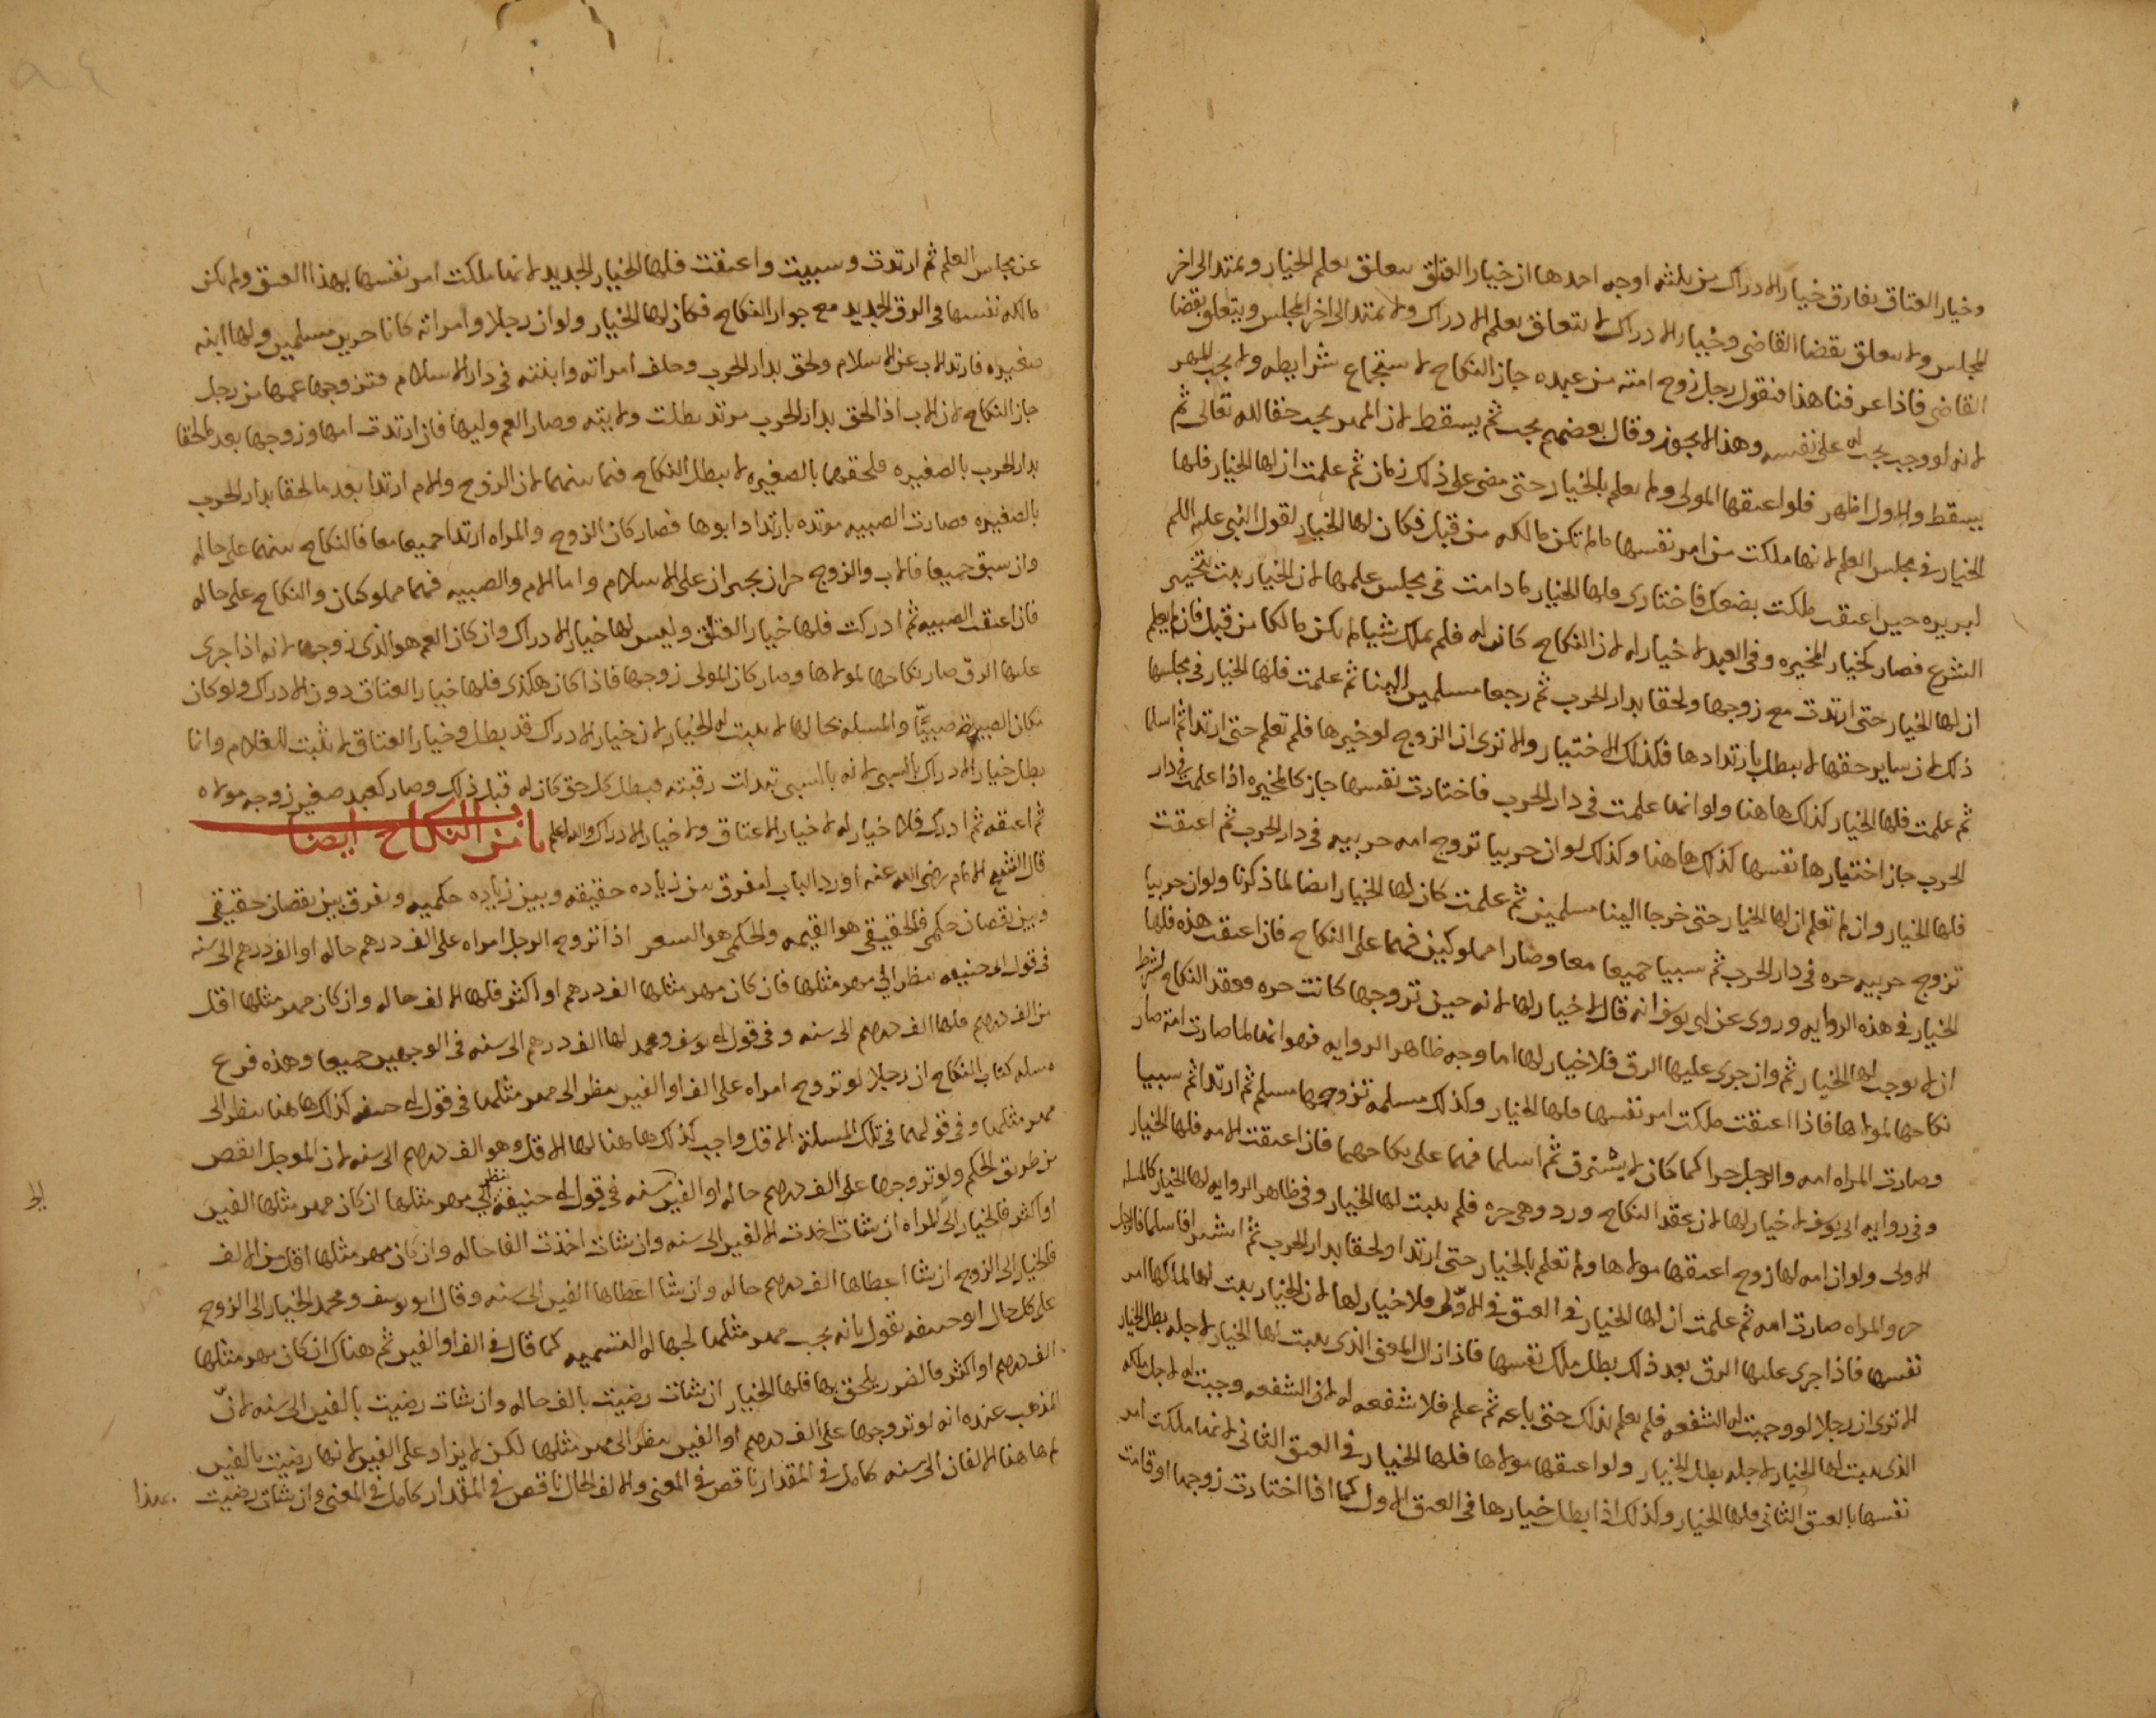 وخيار العتاق يفارق خيار الادراك من ثلثه اوجه احدها ان خيار العتاق يتعلق بعلم الخيار ويمتد الى اخر
المجلس ولا يتعلق بقضا القاضى وخيار الادراك لا يتعلق بعلم الادراك ولا يمتد الى اخر المجلس ويتعلق بقضا
القاضى فاذا عرفنا هذا فنقول رجل زوج امته من عبده جاز النكاح لاستجماع شرايطه ولا يجب المهر
لانه لو وجب يجب له على نفسه وهذا لا يجوز وقال بعضهم يجب ثم يسقط لان المهر يجب حقا لله تعالى ثم
يسقط والاول اظهر فلو اعتقها المولى ولم يعلم بالخيار حتى مضى على ذلك زمان ثم علمت ان لها الخيار فلها
الخيار فى مجلس العلم لانها ملكت من امر نفسها ما لم تكن مالكه من قبل فكان لها الخيار لقول النبى عليه السلم
لبريره حين اعتقت ملكت بضعك فاختارى ولها الخيار ما دامت فى مجلس علمها لان الخيار يثبت بتخيير
الشرع فصار كخيار المخيره وفى العبد لا خيار له لان النكاح كان له فلم يملك شيا لم يكن مالكا من قبل فان لم يعلم
ان لها الخيار حتى ارتدت مع زوجها ولحقا بدار الحرب ثم رجعا مسلمين الينا ثم علمت فلها الخيار فى مجلسها
ذلك لان ساير حقها لا يبطل بارتدادها فكذلك الاختيار والا ترى ان الزوج لو خيرها فلم تعلم حتى ارتدا ثم اسلما
ثم علمت فلها الخيار كذلك هاهنا ولو انها علمت فى دار الحرب فاختارت نفسها جاز كالمخيره اذا علمت فى دار
الحرب جاز اختيارها نفسها كذلك هاهنا وكذلك لو ان حربيا تزوج امه حربيه فى دار الحرب ثم اعتقت
فلها الخيار وان لم تعلم ان لها الخيار حتى خرجا الينا مسلمين ثم علمت كان لها الخيار ايضا لما ذكرنا ولو ان حربيا
تزوج حربيه حره فى دار الحرب ثم سبيا جميعا معا وصارا مملوكين فهما على النكاح فان اعتقت هذه فلها
الخيار فى هذه الروايه وروى عن ابى يوسف انه قال لا خيار لها لانه حين تزوجها كانت حره وعقد النكاح بشرط
ان لا يوجب لها الخيار ثم وان جرى عليها الرق فلا خيار لها اما وجه ظاهر الروايه فهو انها لما صارت امة صار
نكاحها لمولاها فاذا اعتقت ملكت امر نفسها فلها الخيار وكذلك مسلمة تزوجها مسلم ثم ارتدا ثم سبيا
وصارت المراه امه والرجل حرا كما كان لا يسترق ثم اسلما فهما على نكاحهما فان اعتقت الامه فلها الخيار
وفى روايه ابى يوسف لا خيار لها لان عقد النكاح ورد وهى حره فلم يثبت لها الخيار وفى ظاهر الروايه لها الخيار كالمسله
الاولى ولو ان امه لها زوج اعتقها مولاها ولم تعلم بالخيار حتى ارتدا ولحقا بدار الحرب ثم اسرا فاسلما فالرجل
حر والمراه صارت امه ثم علمت ان لها الخيار فى العتق فى الاول فلا خيار لها لان الخيار يثبت لها لملكها امر
نفسها فاذا جرى عليها الرق بعد ذلك بطل ملك نفسها فاذا زال المعنى الذى يثبت لها الخيار لاجله بطل الخيار
الا ترى ان رجلا لو وجبت له الشفعه فلم يعلم بذلك حتى باعه ثم علم فلا شفعه له لان الشفعه وجبت له لاجل ملكه
الذى يثبت لها الخيار لاجله بطل الخيار ولو اعتقها مولاها فلها الخيار فى العتق الثانى لانها ملكت امر
نفسها بالعتق الثانى فلها الخيار وكذلك اذا بطل خيارها فى العتق الاول كما اذا اختارت زوجها او قامت
عن مجلس العلم ثم ارتدت وسبيت واعتقت فلها الخيار الجديد لانها ملكت امر نفسها بهذا العتق ولم يكن
مالكه نفسها فى الرق الجديد مع جواز النكاح فكان لها الخيار ولو ان رجلا وامراته كانا حرين مسلمين ولهما ابنه
صغيره فارتد الاب عن الاسلام ولحق بدار الحرب وخلف امراته وابنته فى دار الاسلام فتزوجها عمها من رجل
جاز النكاح لان الاب اذا لحق بدار الحرب مرتد بطلت ولايته وصار العم وليها فان ارتدت امها وزوجها بعد لحقا
بدار الحرب بالصغيره فلحقهما بالصغيره لا يبطل النكاح فيما بينهما لان الزوج والام ارتدا بعد ما لحقا بدار الحرب
بالصغيره وصارت الصبيه مرتده بارتداد ابوها فصار كان الزوج والمراه ارتدا جميعا معا فالنكاح بينهما على حاله
وان سبق جميعا فالاب والزوج حران يجبران على الاسلام واما الام والصبيه فهما مملوكتان والنكاح على حاله
فان اعتقت الصبيه ثم ادركت فلها خيار العتاق وليس لها خيار الادراك وان كان العم هو الذى زوجها لانه اذا جرى
عليها الرق صار نكاحها لمولاها وصار كان المولى زوجها فاذا كان هكذى فلها خيار العتاق دون الادراك ولو كان
مكان الصبيه صبيا والمسله بحالها لا يثبت له الخيار لان خيار الادراك قد بطل وخيار العتاق لا يثبت للغلام وانما
بطل خيار الادراك بالسبى لانه بالسبى تبدلت رقبته فبطل كل حق كان له قبل ذلك وصار كعبد صغير زوجه مولاه
ثم اعتقه ثم ادرك فلا خيار له لا خيار الاعتاق ولا خيار الادراك والله اعلم باب من النكاح ايضا
قال الشيخ الامام رضى الله عنه اورد الباب ليفرق بين زياده حقيقه وبين زياده حكميه ويفرق بين نقصان حقيقى
وبين نقصان حكمى فالحقيقى هو القيمه والحكمى هو السعر اذا تزوج الرجل امراه على الف درهم حاله او الف درهم الى سنه
فى قول ابى حنيفه ينظر الى مهر مثلها فان كان مهر مثلها الف درهم او اكثر فلها الالف حاله وان كان مهر مثلها اقل
من الف درهم فلها الف درهم الى سنه وفى قول ابى يوسف ومحمد لها الف درهم الى سنه فى الوجهين جميعا وهذه فرع
مسله كتاب النكاح ان رجلا لو تزوج امراه على الف او الفين ينظر الى مهر مثلها فى قول ابى حنيفه كذلك هاهنا ينظر الى
مهر مثلها وفى قولهما فى تلك المسلة الاقل واجب كذلك هاهنا لها الاقل وهو الف درهم الى سنه لان الموجل انقص
من طريق الحكم ولو تزوجها على الف درهم حاله او الفين سنه فى قول ابى حنيفه ينظر الى مهر مثلها ان كان مهر مثلها الفين
او اكثر فالخيار الى المراه ان شات اخذت الالفين الى سنه وان شات اخذت الفا حاله وان كان مهر مثلها اقل من الالف
فالخيار الى الزوج ان شا اعطاها الف درهم حاله وان شا اعطاها الفين الى سنه وقال ابو يوسف ومحمد الخيار الى الزوج
على كل حال ابو حنيفه يقول بانه يجب مهر مثلها لجهاله التسميه كما قال فى الف او الفين ثم هناك ان كان مهر مثلها
الف درهم او اكثر فالضرر يلحق بها فلها الخيار ان شات رضيت بالف حاله وان شات رضيت بالفين الى سنه لانّ
المذهب عنده انه لو تزوجها على الف درهم او الفين ينظر الى مهر مثلها لكن لا يزاد على الفين لانها رضيت بالفين
ثم هاهنا الالفان الى سنه كامل فى المقدار ناقص فى المعنى والالف الحال ناقص فى المقدار كامل فى المعنى وان شات رضيت
بهذا